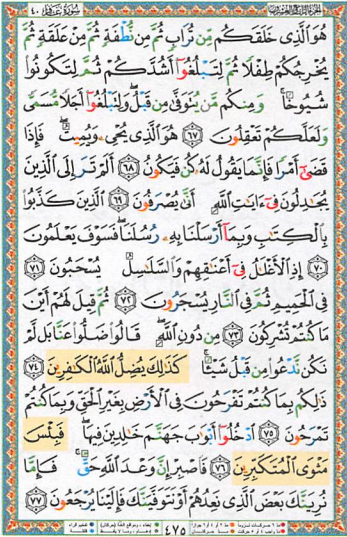 سورة غافر ٤٠
هُوَ ٱلَّذِى خَلَقَكُم مِّن تُرَابٍ ثُمَّ مِن نُّطْفَةٍ ثُمَّ مِنْ عَلَقَةٍ ثُمَّ
يُخْرِجُكُمْ طِفْلًا ثُمَّ لِتَبْلُغُوٓا۟ أَشُدَّكُمْ ثُمَّ لِتَكُونُوا۟
شُيُوخًا ۚ وَمِنكُم مَّن يُتَوَفَّىٰ مِن قَبْلُ ۖ وَلِتَبْلُغُوٓا۟ أَجَلًا مُّسَمًّى
وَلَعَلَّكُمْ تَعْقِلُونَ ٦٧ هُوَ ٱلَّذِى يُحْىِۦ وَيُمِيتُ ۖ فَإِذَا
قَضَىٰٓ أَمْرًا فَإِنَّمَا يَقُولُ لَهُۥ كُن فَيَكُونُ ٦٨ أَلَمْ تَرَ إِلَى ٱلَّذِينَ
يُجَٰدِلُونَ فِىٓ ءَايَٰتِ ٱللَّهِ أَنَّىٰ يُصْرَفُونَ ٦٩ ٱلَّذِينَ كَذَّبُوا۟
بِٱلْكِتَٰبِ وَبِمَآ أَرْسَلْنَا بِهِۦ رُسُلَنَا ۖ فَسَوْفَ يَعْلَمُونَ
٧٠ إِذِ ٱلْأَغْلَٰلُ فِىٓ أَعْنَٰقِهِمْ وَٱلسَّلَٰسِلُ يُسْحَبُونَ ٧١
فِى ٱلْحَمِيمِ ثُمَّ فِى ٱلنَّارِ يُسْجَرُونَ ٧٢ ثُمَّ قِيلَ لَهُمْ أَيْنَ
مَا كُنتُمْ تُشْرِكُونَ ٧٣ مِن دُونِ ٱللَّهِ ۖ قَالُوا۟ ضَلُّوا۟ عَنَّا بَل لَّمْ
نَكُن نَّدْعُوا۟ مِن قَبْلُ شَيْـًٔا ۚ كَذَٰلِكَ يُضِلُّ ٱللَّهُ ٱلْكَٰفِرِينَ ٧٤
ذَٰلِكُم بِمَا كُنتُمْ تَفْرَحُونَ فِى ٱلْأَرْضِ بِغَيْرِ ٱلْحَقِّ وَبِمَا كُنتُمْ
تَمْرَحُونَ ٧٥ ٱدْخُلُوٓا۟ أَبْوَٰبَ جَهَنَّمَ خَٰلِدِينَ فِيهَا ۖ فَبِئْسَ
مَثْوَى ٱلْمُتَكَبِّرِينَ ٧٦ فَٱصْبِرْ إِنَّ وَعْدَ ٱللَّهِ حَقٌّ ۚ فَإِمَّا
نُرِيَنَّكَ بَعْضَ ٱلَّذِى نَعِدُهُمْ أَوْ نَتَوَفَّيَنَّكَ فَإِلَيْنَا يُرْجَعُونَ ٧٧
٤٧٥